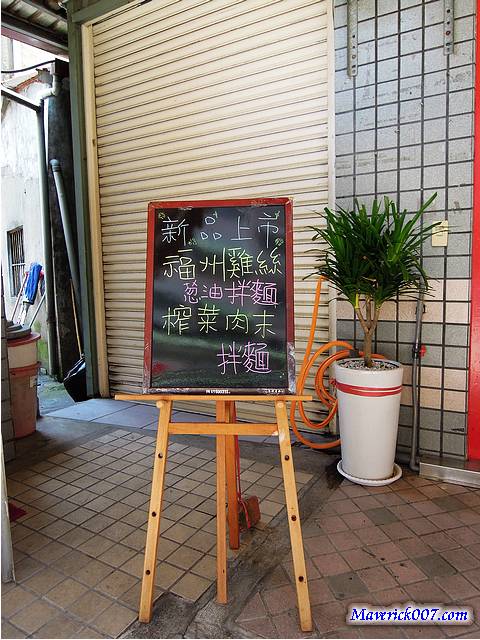 新品上市
福州雞絲
葱油拌麵
榨菜肉末
拌麵
Maverick007.com